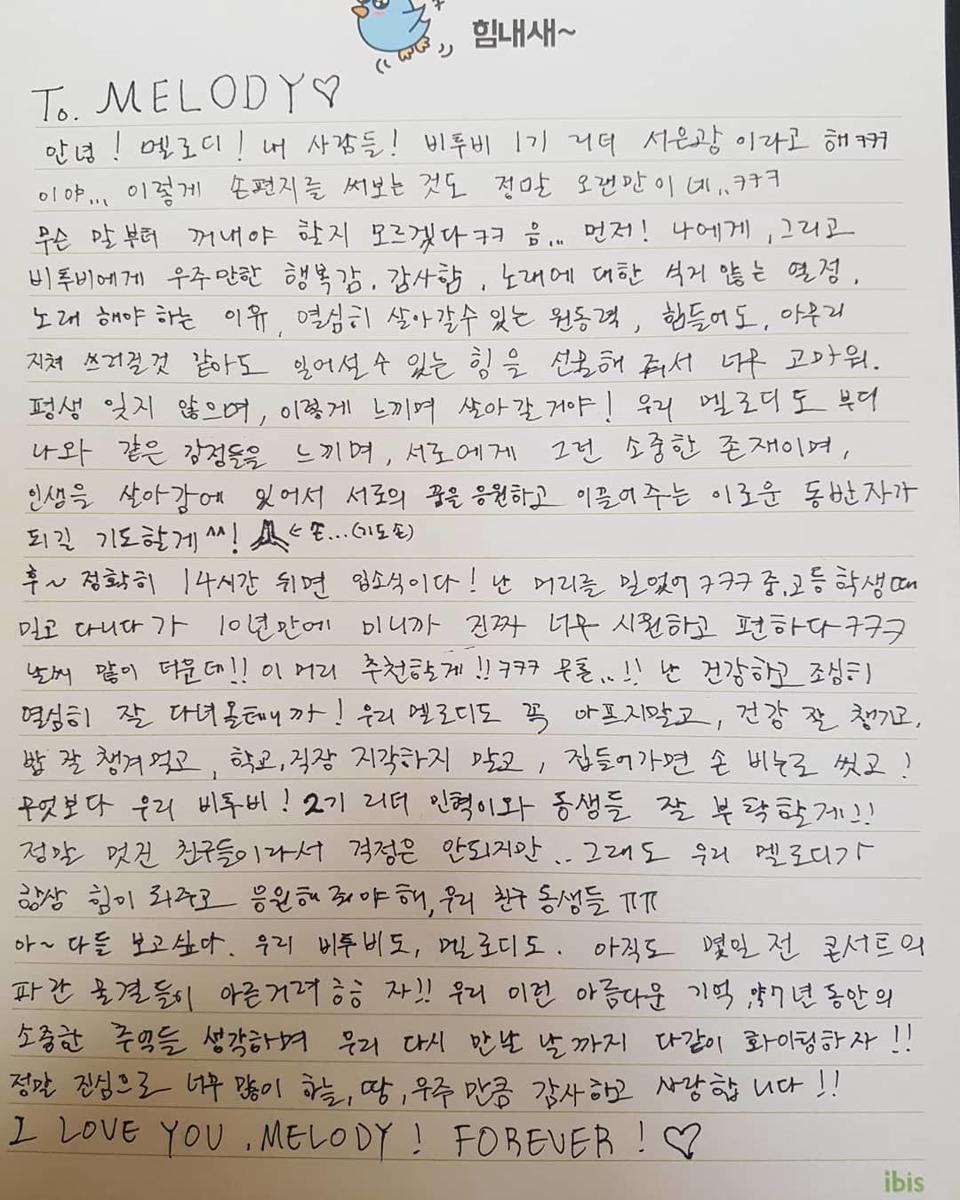 힘내새~
To. MELODY♡
안녕! 멜로디! 내 사람들! 비투비 1기 리더 서은광 이라고 해ㅋㅋㅋ
이야... 이렇게 손편지를 써보는 것도 정말 오랜만이네..ㅋㅋㅋ
무슨 말부터 꺼내야 할지 모르겠다ㅋㅋ 음... 먼저! 나에게, 그리고
비투비에게 우주만한 행복감, 감사함, 노래에 대한 식지 않는 열정,
노래 해야 하는 이유, 열심히 살아갈수 있는 원동력, 힘들어도, 아무리
지쳐 쓰러질것 같아도 일어설 수 있는 힘을 선물해 줘서 너무 고마워.
평생 잊지 않으며, 이렇게 느끼며 살아갈거야! 우리 멜로디도 부디
나와 같은 감정들을 느끼며, 서로에게 그런 소중한 존재이며,
인생을 살아감에 있어서 서로의 꿈을 응원하고 이끌어주는 이로운 동반자가
되길 기도할게^^! <손...(기도손)
후~ 정확히 14시간 뒤면 입소식이다! 난 머리를 밀었어ㅋㅋㅋ 중,고등학생때
밀고 다니다가 10년만에 미니까 진짜 너무 시원하고 편하다ㅋㅋㅋ
날씨 많이 더운데!! 이 머리 추천할게!!ㅋㅋㅋ 무튼..!! 난 건강하고 조심히
열심히 잘 다녀올테니까! 우리 멜로디도 꼭 아프지말고, 건강 잘 챙기고,
밥 잘 챙겨먹고, 학교,직장 지각하지 말고, 집들어가면 손 비누로 씻고!
무엇보다 우리 비투비! 2기 리더 민혁이와 동생들 잘 부탁할게!!
정말 멋진 친구들이라서 걱정은 안되지만.. 그래도 우리 멜로디가
항상 힘이 돼주고 응원해 줘야 해, 우리 친구 동생들 ㅠㅠ
아~ 다들 보고싶다. 우리 비투비도, 멜로디도. 아직도 몇일 전 콘서트의
파란 물결들이 아른거려 흐흐 자!! 우리 이런 아름다운 기억, 약7년 동안의
소중한 추억들 생각하며 우리 다시 만날 날까지 다같이 화이팅하자!!
정말 진심으로 너무 많이 하늘, 땅, 우주 만큼 감사하고 사랑합니다!!
I LOVE YOU, MELODY! FOREVER!♡
ibis